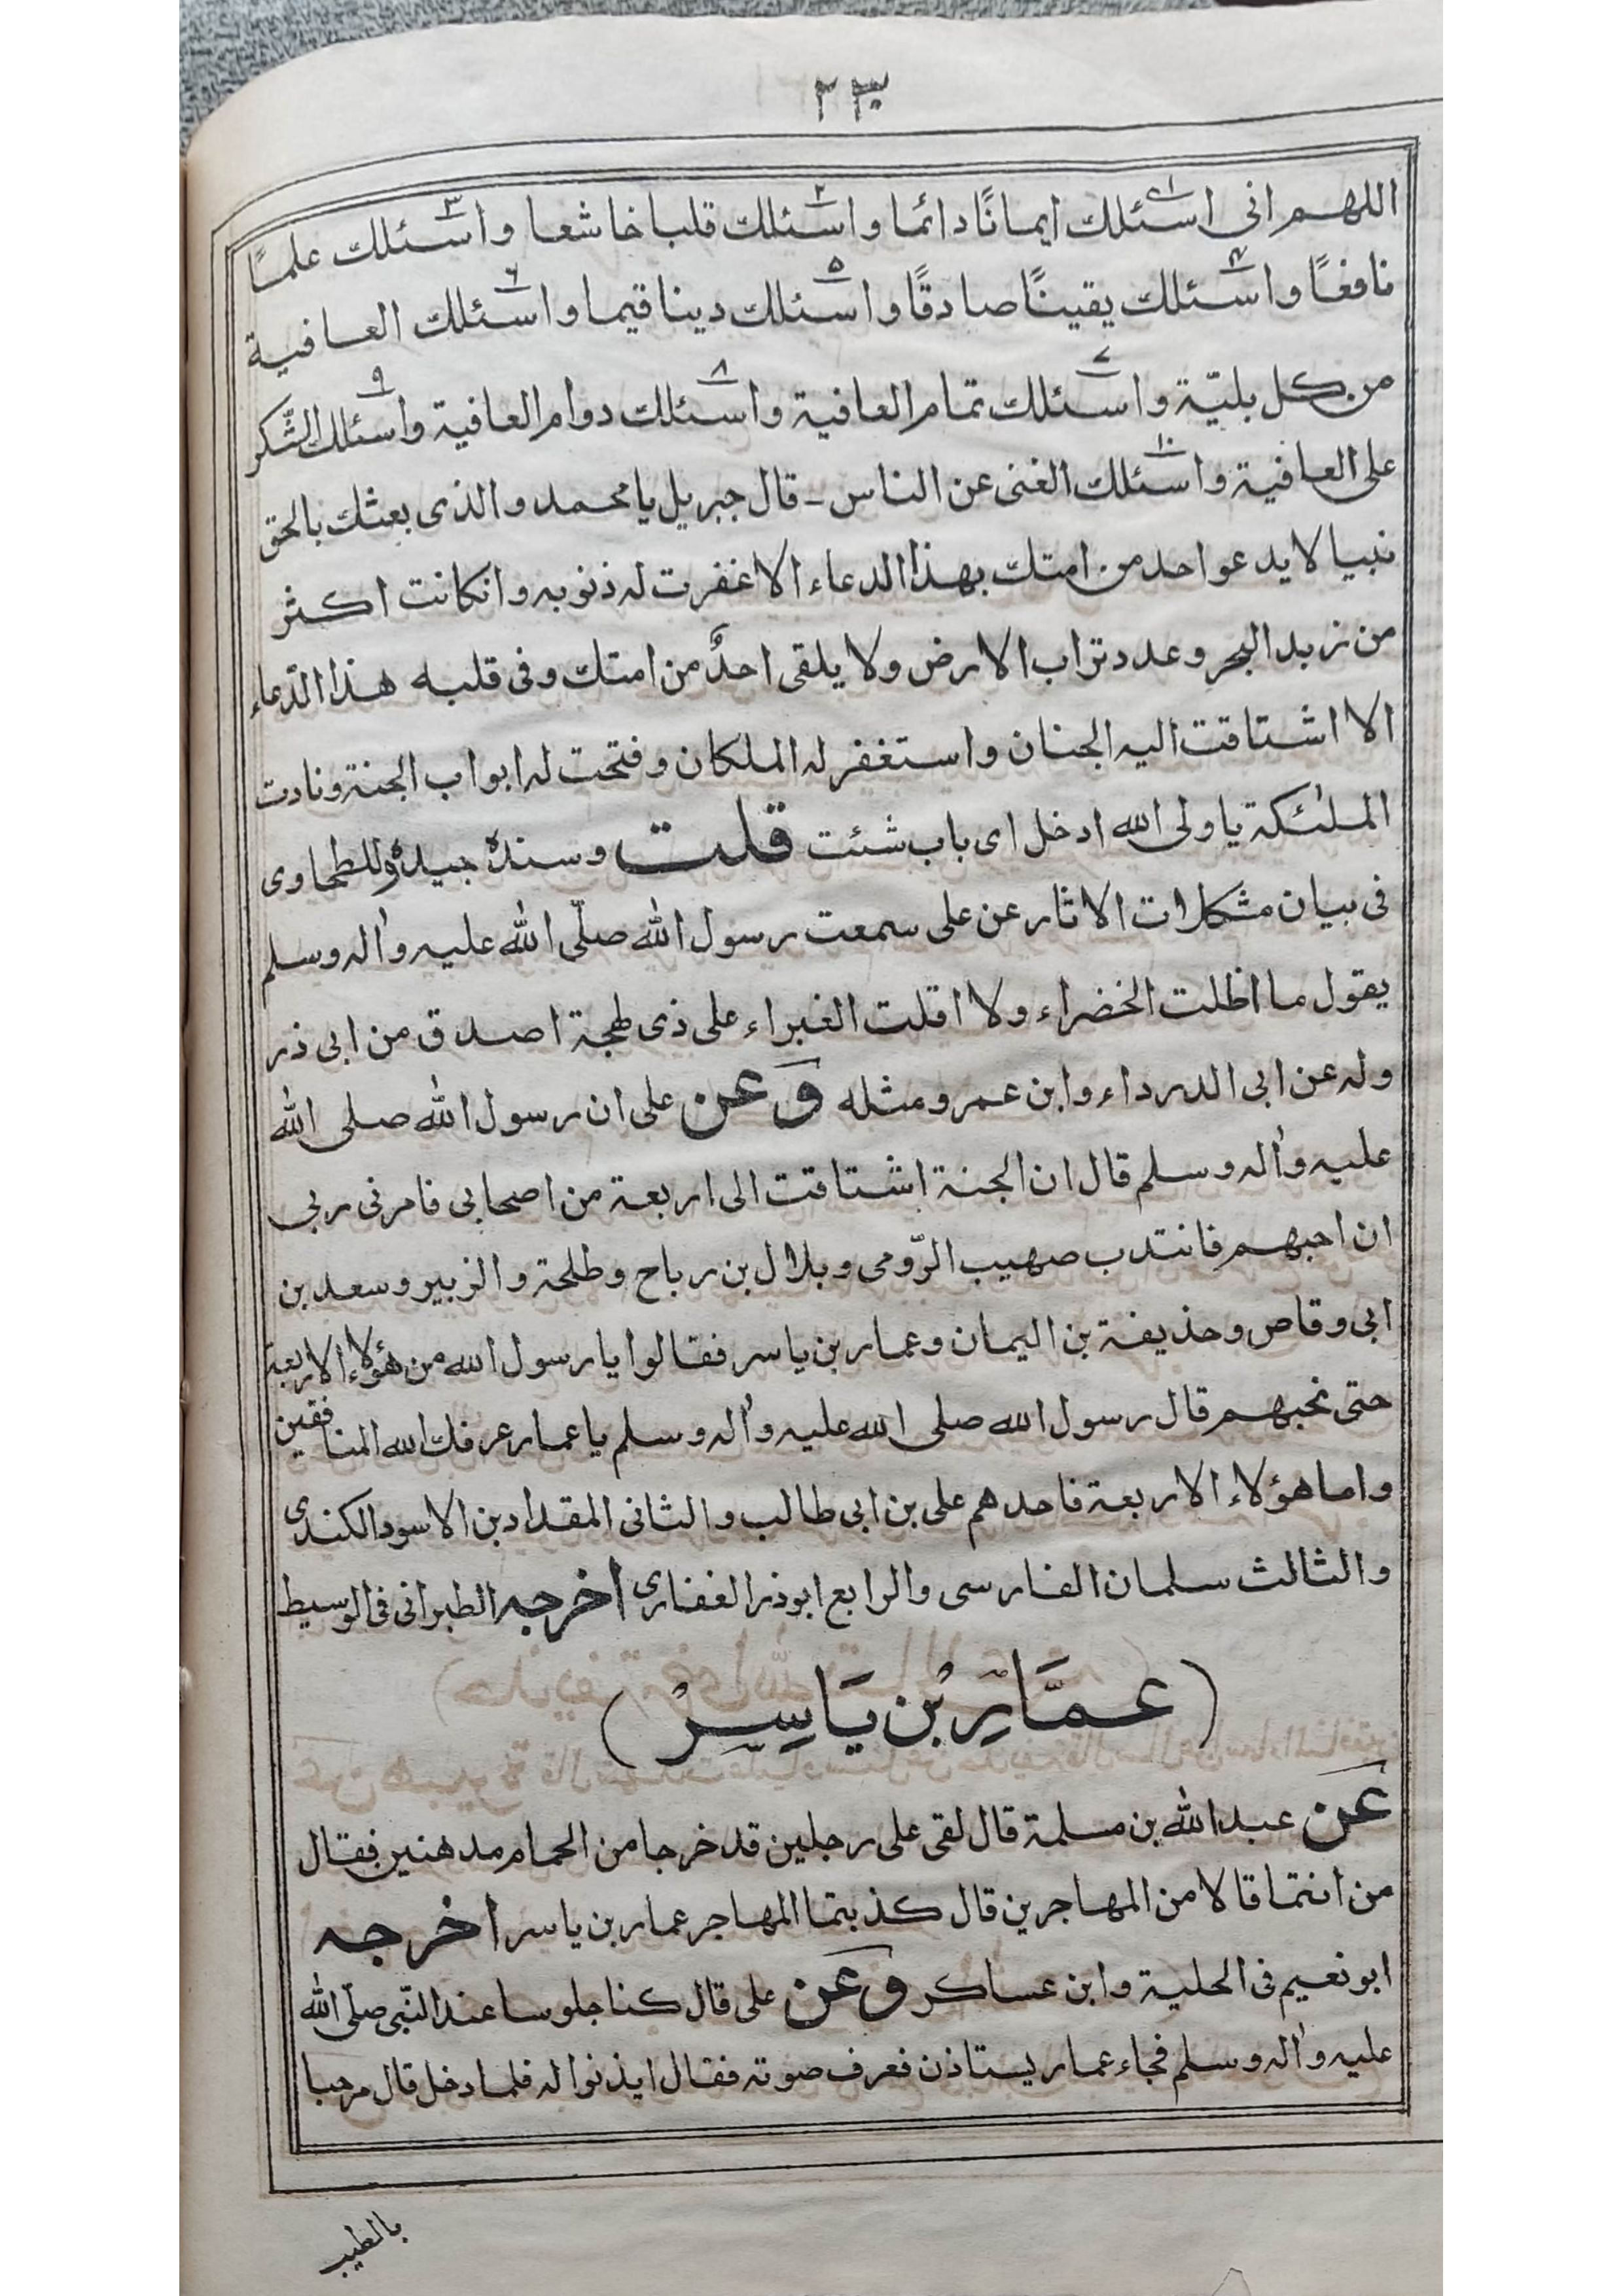 ٢٣
اللهم انى اسئلك ايمانًا دائما واسئلك قلبا خاشعا واسئلك علمًا
نافعًا واسئلك يقينًا صادقًا واسئلك دينا قيما واسئلك العافية
من كل بليّة واسئلك تمام العافية واسئلك دوام العافية واسئلك الشّكر
على العافية واسئلك الغنى عن الناس ـ قال جبريل يا محمد والذى بعثك بالحق
نبيا لا يدعو احد من امتك بهذا الدعاء الا غفرت له ذنوبه وانكانت اكثر
من زبد البحر وعدد تراب الارض ولا يلقى احدٌ من امتك وفى قلبه هذا الدّعاء
الا اشتاقت اليه الجنان واستغفر له الملكان وفتحت له ابواب الجنة ونادت
الملئكة يا ولى الله ادخل اى باب شئت قلت وسنده جيد وللطحاوى
فى بيان مشكلات الاثار عن على سمعت رسول الله صلّى الله عليه واٰله وسلم
يقول ما اظلت الخضراء ولا اقلت الغبراء على ذى لهجة اصدق من ابى ذر
وله عن ابى الدرداء وابن عمرو مثله وَعن على ان رسول الله صلى الله
عليه واٰله وسلم قال ان الجنة اشتاقت الى اربعة من اصحابى فامرنى ربى
ان احبهم فانتدب صهيب الرّومى وبلال بن رباح وطلحة والزبير وسعد بن
ابى وقاص وحذيفة بن اليمان وعمار بن ياسر فقالوا يا رسول الله من هؤلاء الاربعة
حتى نحبهم قال رسول الله صلى الله عليه واٰله وسلم يا عمار عرفك الله المنافقين
واما هؤلاء الاربعة فاحدهم على بن ابى طالب والثانى المقداد بن الاسود الكندى
والثالث سلمان الفارسى والرابع ابوذر الغفارى اخرجه الطبرانى فى الوسيط
(عمَّارِ بْن يَاسِرْ)
عَن عبد الله بن مسلمة قال لقى على رجلين قد خرجا من الحمام مدهنين فقال
من انتما قالا من المهاجرين قال كذبتما المهاجر عمار بن ياسر اخرجه
ابو نعيم فى الحلية وابن عساكر وعَن على قال كنا جلوسا عند النّبى صلّى الله
عليه واٰله وسلم فجاء عمار يستاذن فعرف صوته فقال ايذنوا له فلما دخل قال مرحبا
بالطيب